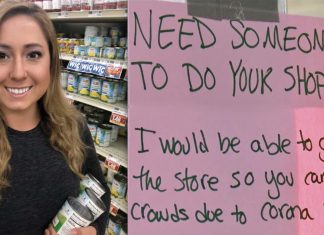 WIC WIC WIC
NEED SOMEON
TO DO YOUR SHOP
I would be able to g
the store so you can
crowds due to corona